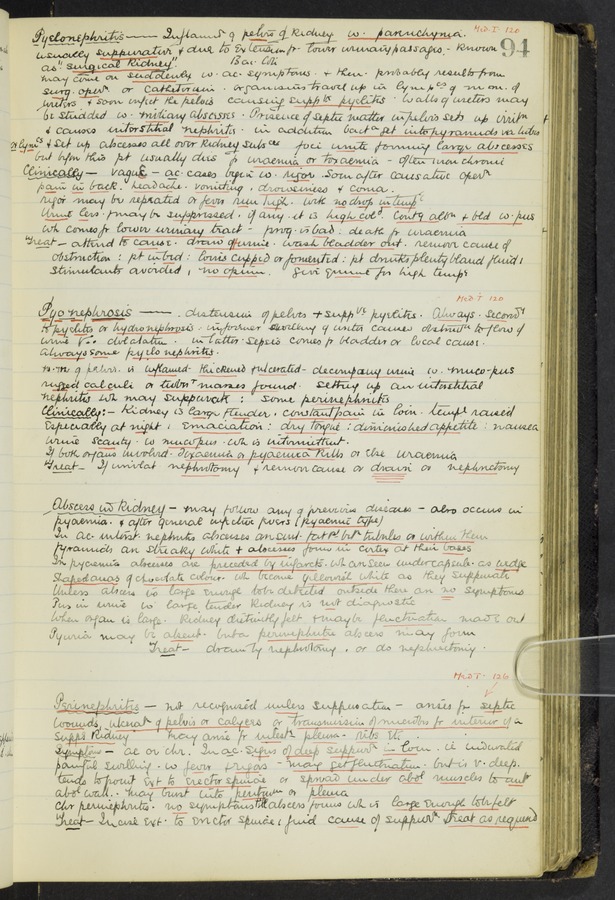 Med. I. 120
94
Pyelonephritis — Inflamn of pelvis of Kidney w. parenchyma.
usually suppurative & due to Extension fr lower urinary passages. - Known
as "surgical Kidney" Bac. Coli
may come on suddenly w. ac. symptoms & then probably results from
surg. opern or catheterism. organisms travel up in lymphcs of m.m. of
ureters & soon infect the pelvis causing suppve pyelitis. Walls of ureters may
be studded w. miliary abscesses. Presence of septic matter in pelvis sets up
& causes interstitial nephritis. in addition get into pyramids via tubules
or lymcs & set up abscesses all over Kidney foci unite forming large abscesses
but before this pt usually dies of uraemia or toxaemia - often non chronic
Clinically — vague - ac. cases begin w. rigor. Soon after causative opern
pain in back. headache. vomiting. drowsiness & coma.
rigor may be repeated or fever run high. with no drop in tempe
Urine less. & may be suppressed. if any. it is high cold. Contg albn & bld w. pus
wh comes fr lower urinary tract - prog. is bad: death fr uraemia
Treat — attend to cause. draw off urine. wash bladder out. remove cause of
obstruction: pt in bed: loins cupped or fomented: pt drinks plenty bland fluid:
stimulants avoided, no opium. Give quinine for high tempe
Med I 120
Pyonephrosis — distension of pelvis & suppve pyelitis. Always. secondy
to pyelitis or hydronephrosis. in former swelling of ureter causes obstrun to flow of
urine & dilatation. in latter sepsis comes fr bladder or local cause.
always some pyelonephritis.
m.m of pelvis. is inflamed. thickened & ulcerated - decomposg urine w. muco-pus
rugged calculi or masses found. Setting up an interstitial
nephritis wh may suppurate: some perinephritis
Clinically:- Kidney is large & tender, constant pain in loin. tempe raised
Especially at night, Emaciation: dry tongue: diminished appetite: nausea
urine scanty. w muco pus. wh is intermittent.
If both organs involvd. Toxaemia or pyaemia Kills or else uraemia
Treat - If unilat nephrotomy & remove cause or drain or nephrectomy
Abscess in Kidney — may follow any of previous diseases - also occurs in
pyaemia. & after general infective fevers (pyaemic type)
In ac. interst. nephritis abscesses are bet. tubules or within them
pyramids are streaky white & abscesses form in cortex at their bases
In pyaemia abscesses are preceded by infarcts. wh can seen under capsule. as wedge
shaped areas of chocolate colour. wh become yellowish white as they suppurate
Unless abscess is large Enough to be detected outside there are no symptoms
Pus in urine w. large tender Kidney is not diagnostic
When organ is large. Kidney distinctly felt & maybe fluctuation made out
Pyuria may be absent. but a perinephritic abscess may form
Treat - drain by nephrotomy. or do nephrectomy.
Med I. 126
Perinephritis — not recognised unless suppuration - arises fr septic
wounds, ulcerat of pelvis or calyces or transmission of microbes fr interior of a
suppg Kidney may arise fr intests pleura. ribs Etc
symptoms - ac or chr. In ac. signs of deep suppurn in loin. ie indurated
painful swelling w fever & rigors - may get fluctuation. but is v. deep.
tends to point Ext to Erector spinae or spread under abdl muscles to ant
abdl wall. may burst into peritoneum or pleura
Chr perinephritis. no symptoms till abscess forms wh is large Enough to be felt
Treat - Incise Ext. to Erector spinae, find cause of suppurn & treat as required